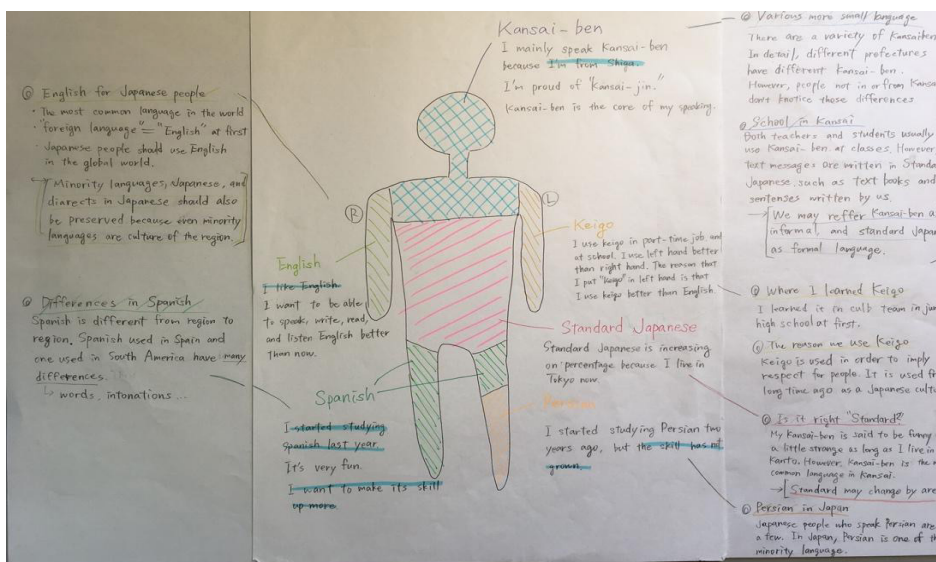 ◎ English for Japanese people
・The most common language in the world
・"foreign language" = "English" at first
・Japanese people should use English
in the global world.
Minority languages, Japanese, and
diarects in Japanese should also
be preserved because even minority
languages are culture of the region.
◎ Differences in Spanish
Spanish is different from region to
region. Spanish used in Spain and
one used in South America have many
differences.
↳ words, intonations ...
Kansai-ben
I mainly speak Kansai-ben
because I'm from Shiga.
I'm proud of "Kansai-jin".
Kansai-ben is the core of my speaking.
R
L
English
I like English.
I want to be able
to speak, write, read,
and listen English better
than now.
Keigo
I use keigo in part-time job, and
at school. I use left hand better
than right hand. The reason that
I put "keigo" in left hand is that
I use keigo better than English
Standard Japanese
Standard Japanese is increasing
on percentage because I live in
Tokyo now.
Spanish
I started studying
Spanish last year.
It's very fun.
I want to make its skill
up more.
Persian
I started studying Persian two
years ago, but the skill has not
grown.
◎ Various more small language
There are a variety of Kansaiben
In detail, different prefectures
have different Kansai-ben.
However, people not in or from Kansai
don't knotice those differences
◎ School in Kansai
Both teachers and students usually
use Kansai-ben at classes. However
text messages are written in Standa
Japanese, such as text books and
sentences written by us.
→ We may reffer Kansai-ben a
informal, and standard Japan
as formal language.
◎ Where I learned Keigo
I learned it in culb team in jun
high school at first.
◎ The reason we use Keigo
Keigo is used in order to imply
respect for people. It is used fr
long time ago as a Japanese cultu
◎ Is it right "Standard"?
My Kansai-ben is said to be funny
a little strange as long as I live in
Kanto. However, Kansai-ben is the m
common language in Kansai.
→ Standard may change by are
◎ Persian in Japan
Japanese people who speak Persian are
a few. In Japan, Persian is one of th
minority language.